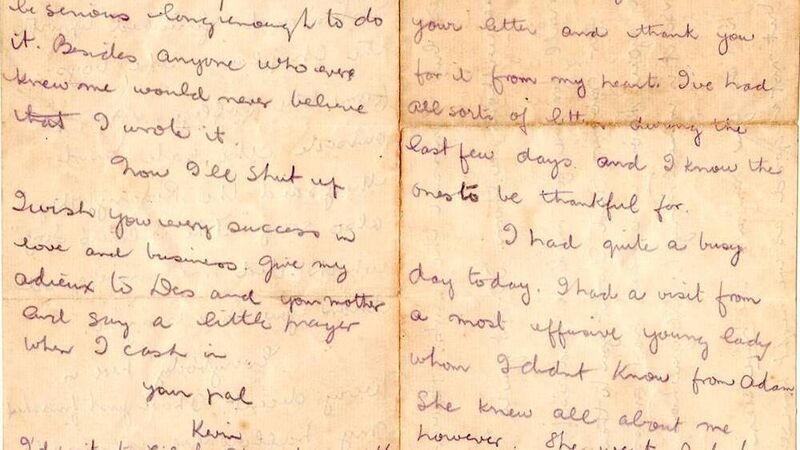 be serious long enough to do
it. Besides anyone who ever
knew me would never believe
that I wrote it.
Now I'll shut up
I wish you every success in
love and business. Give my
adieux to Des and your mother
and say a little prayer
when I cash in
your pal
Kevin
your letter and thank you
for it from my heart. I've had
all sorts of letters during the
last few days and I know the
ones to be thankful for.
I had quite a busy
day today. I had a visit from
a most effusive young lady
whom I didnt know from Adam
She knew all about me
however. She